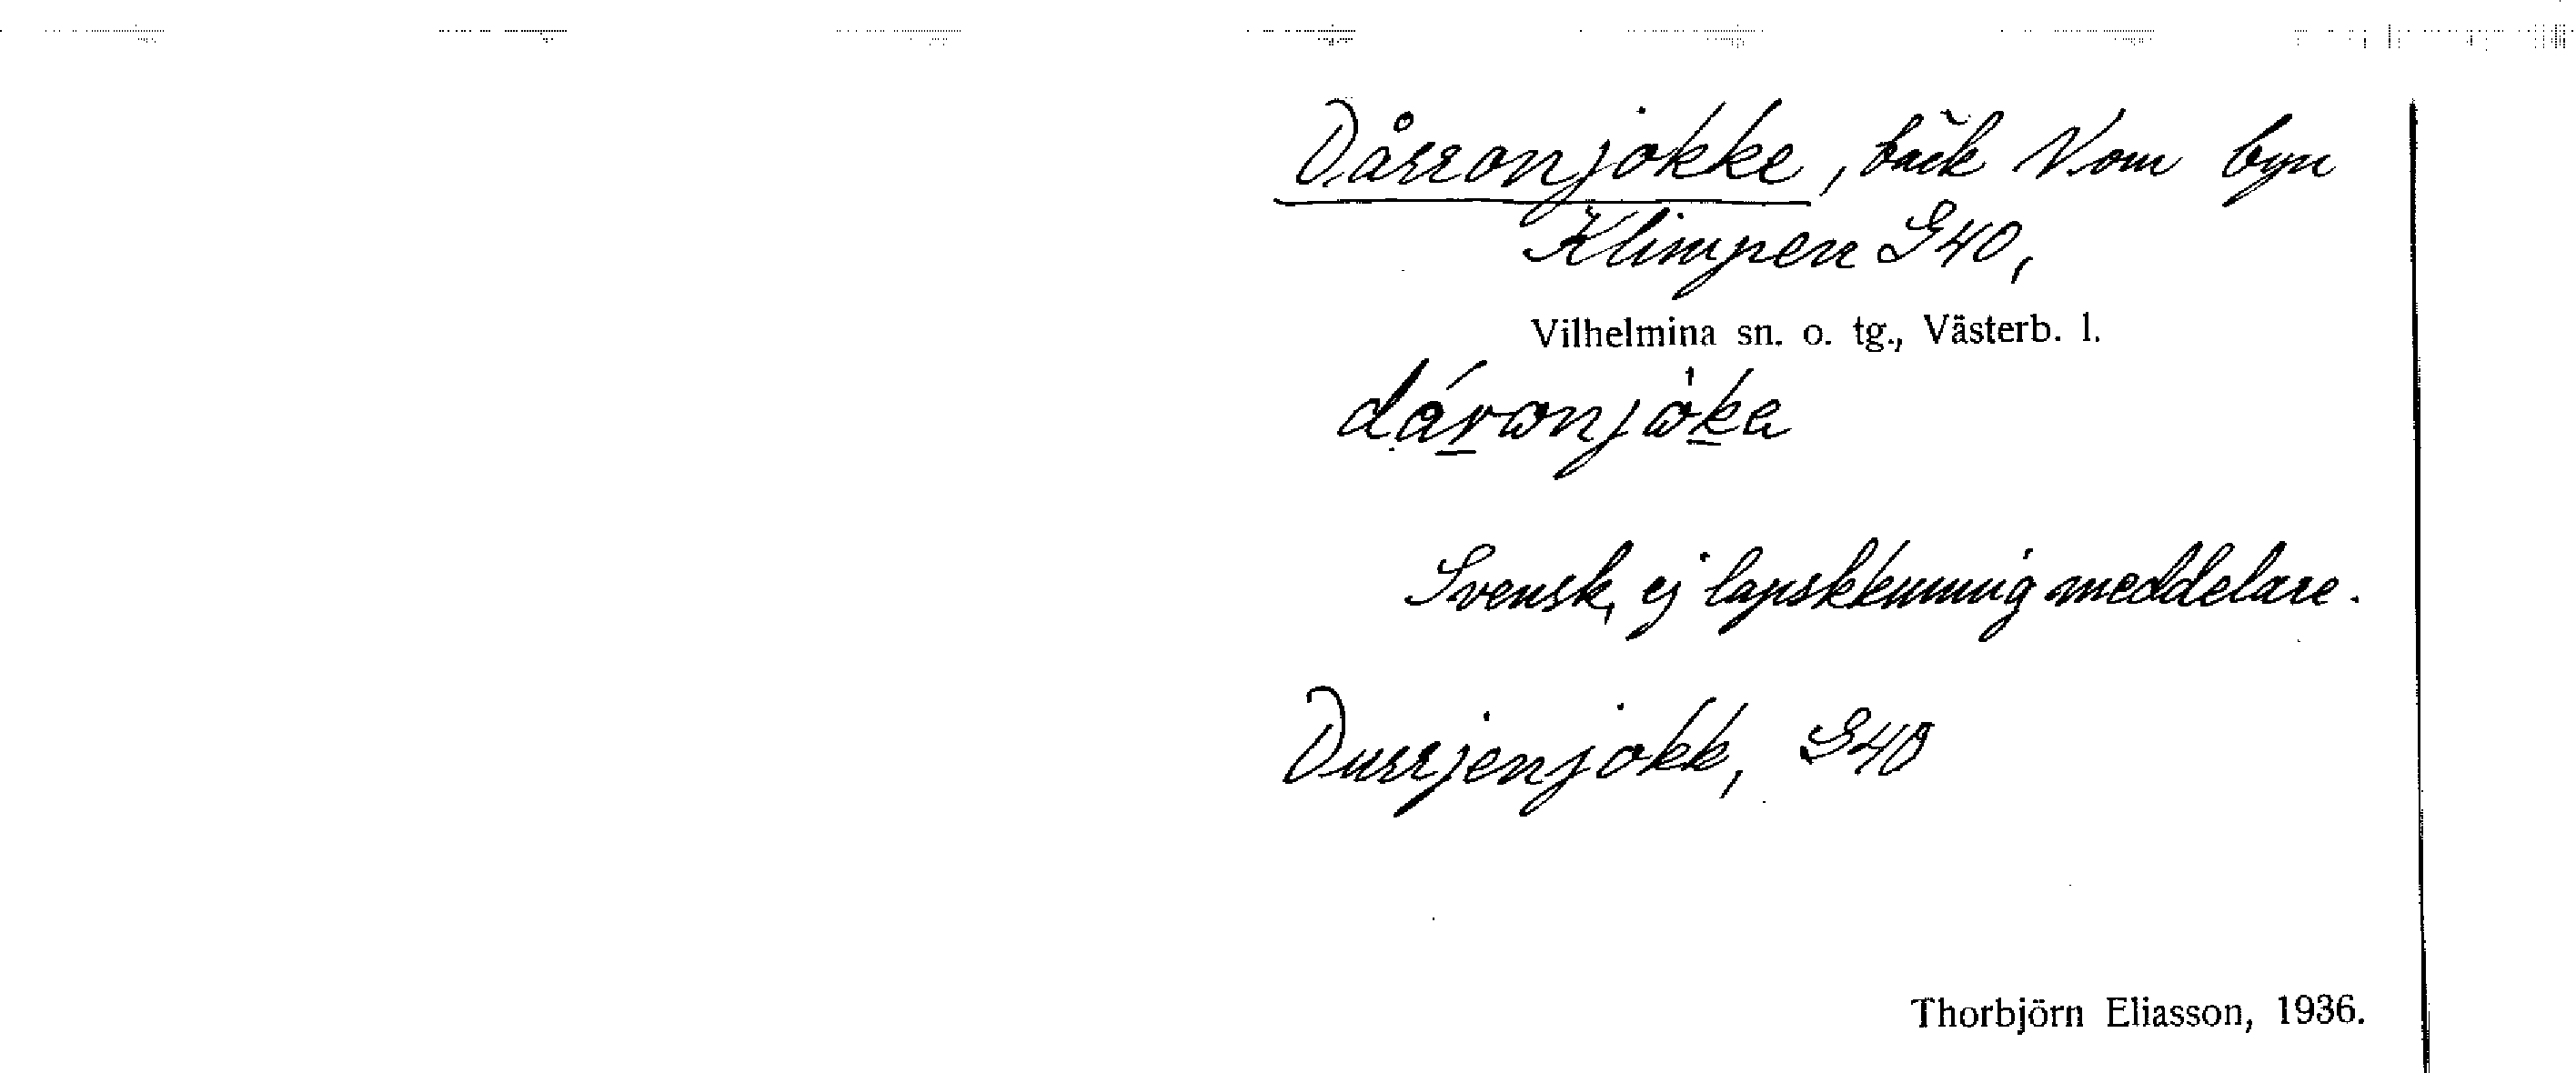 Dårronjokke, bäck V om byn
Klimpen G40,
Vilhelmina sn. o. tg., Västerb. l.
dáronjòka
Svensk, ej lapskkunnig meddelare.
Durrjenjokk, G40
Thorbjörn Eliasson, 1936.